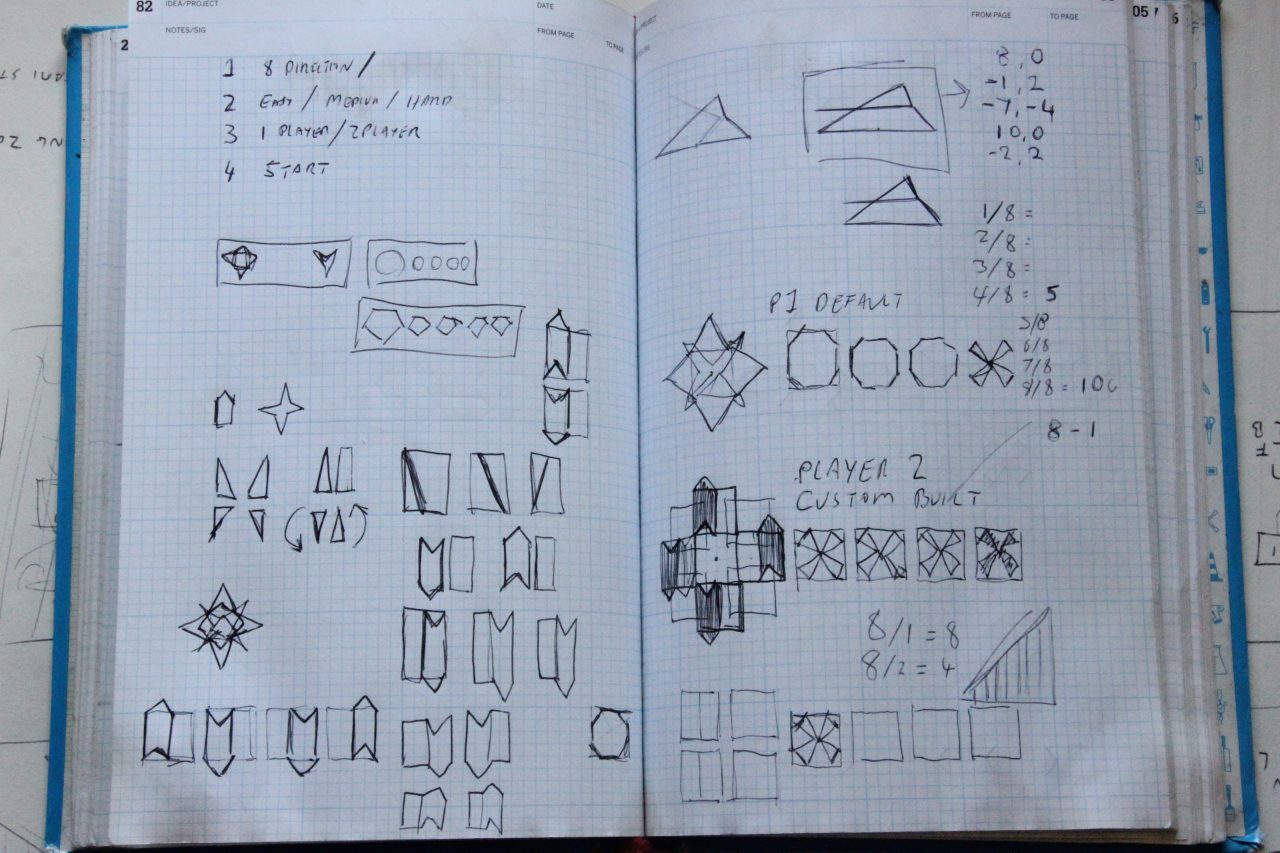 82 IDEA/PROJECT DATE
NOTES/SIG FROM PAGE TO PAGE
2
1 8 DIRECTION /
2 EASY / MEDIUM / HARD
3 1 PLAYER / 2 PLAYER
4 START
PROJECT FROM PAGE TO PAGE 05
8, 0
-1, 2
-7, -4
10, 0
-2, 2
1/8 =
2/8 =
3/8 =
4/8 = 5
5/8
6/8
7/8
8/8 = 100
P1 DEFAULT
8 - 1
PLAYER 2
CUSTOM BUILT
8/1 = 8
8/2 = 4